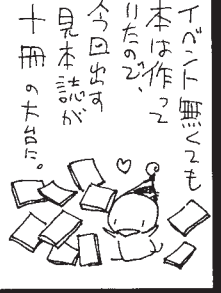 イベント無くても
本は作って
いたので、
今回出す
見本誌が
十冊の大台に。